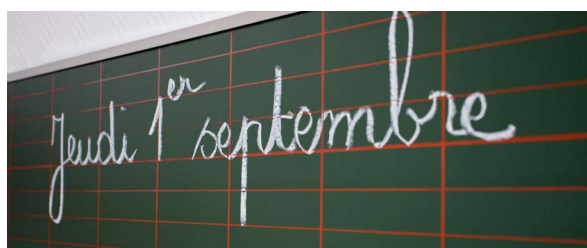 Jeudi 1er septembre